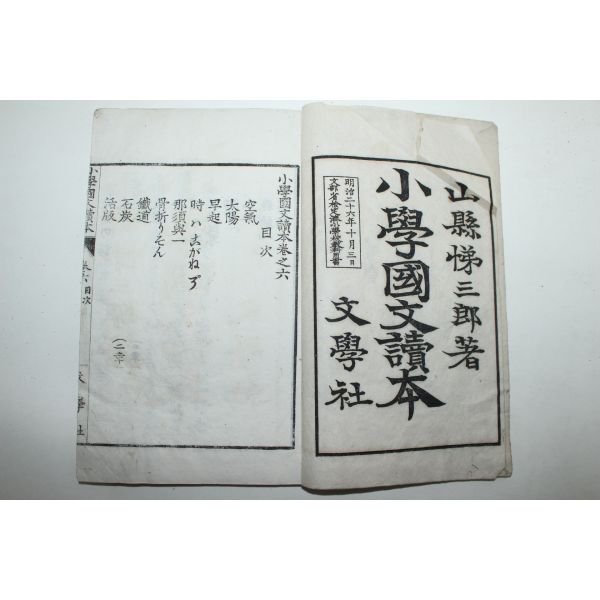 山縣悌三郎著
小學國文讀本
文學社
明治二十六年十月三日
文部省檢定濟小學校敎科用書
小學國文讀本卷之六
目次
空氣
太陽
早起
時ハこがねぞ
那須與一
骨折りぞん
鐵道
石炭
活版
小學國文讀本
卷六目次
文學社